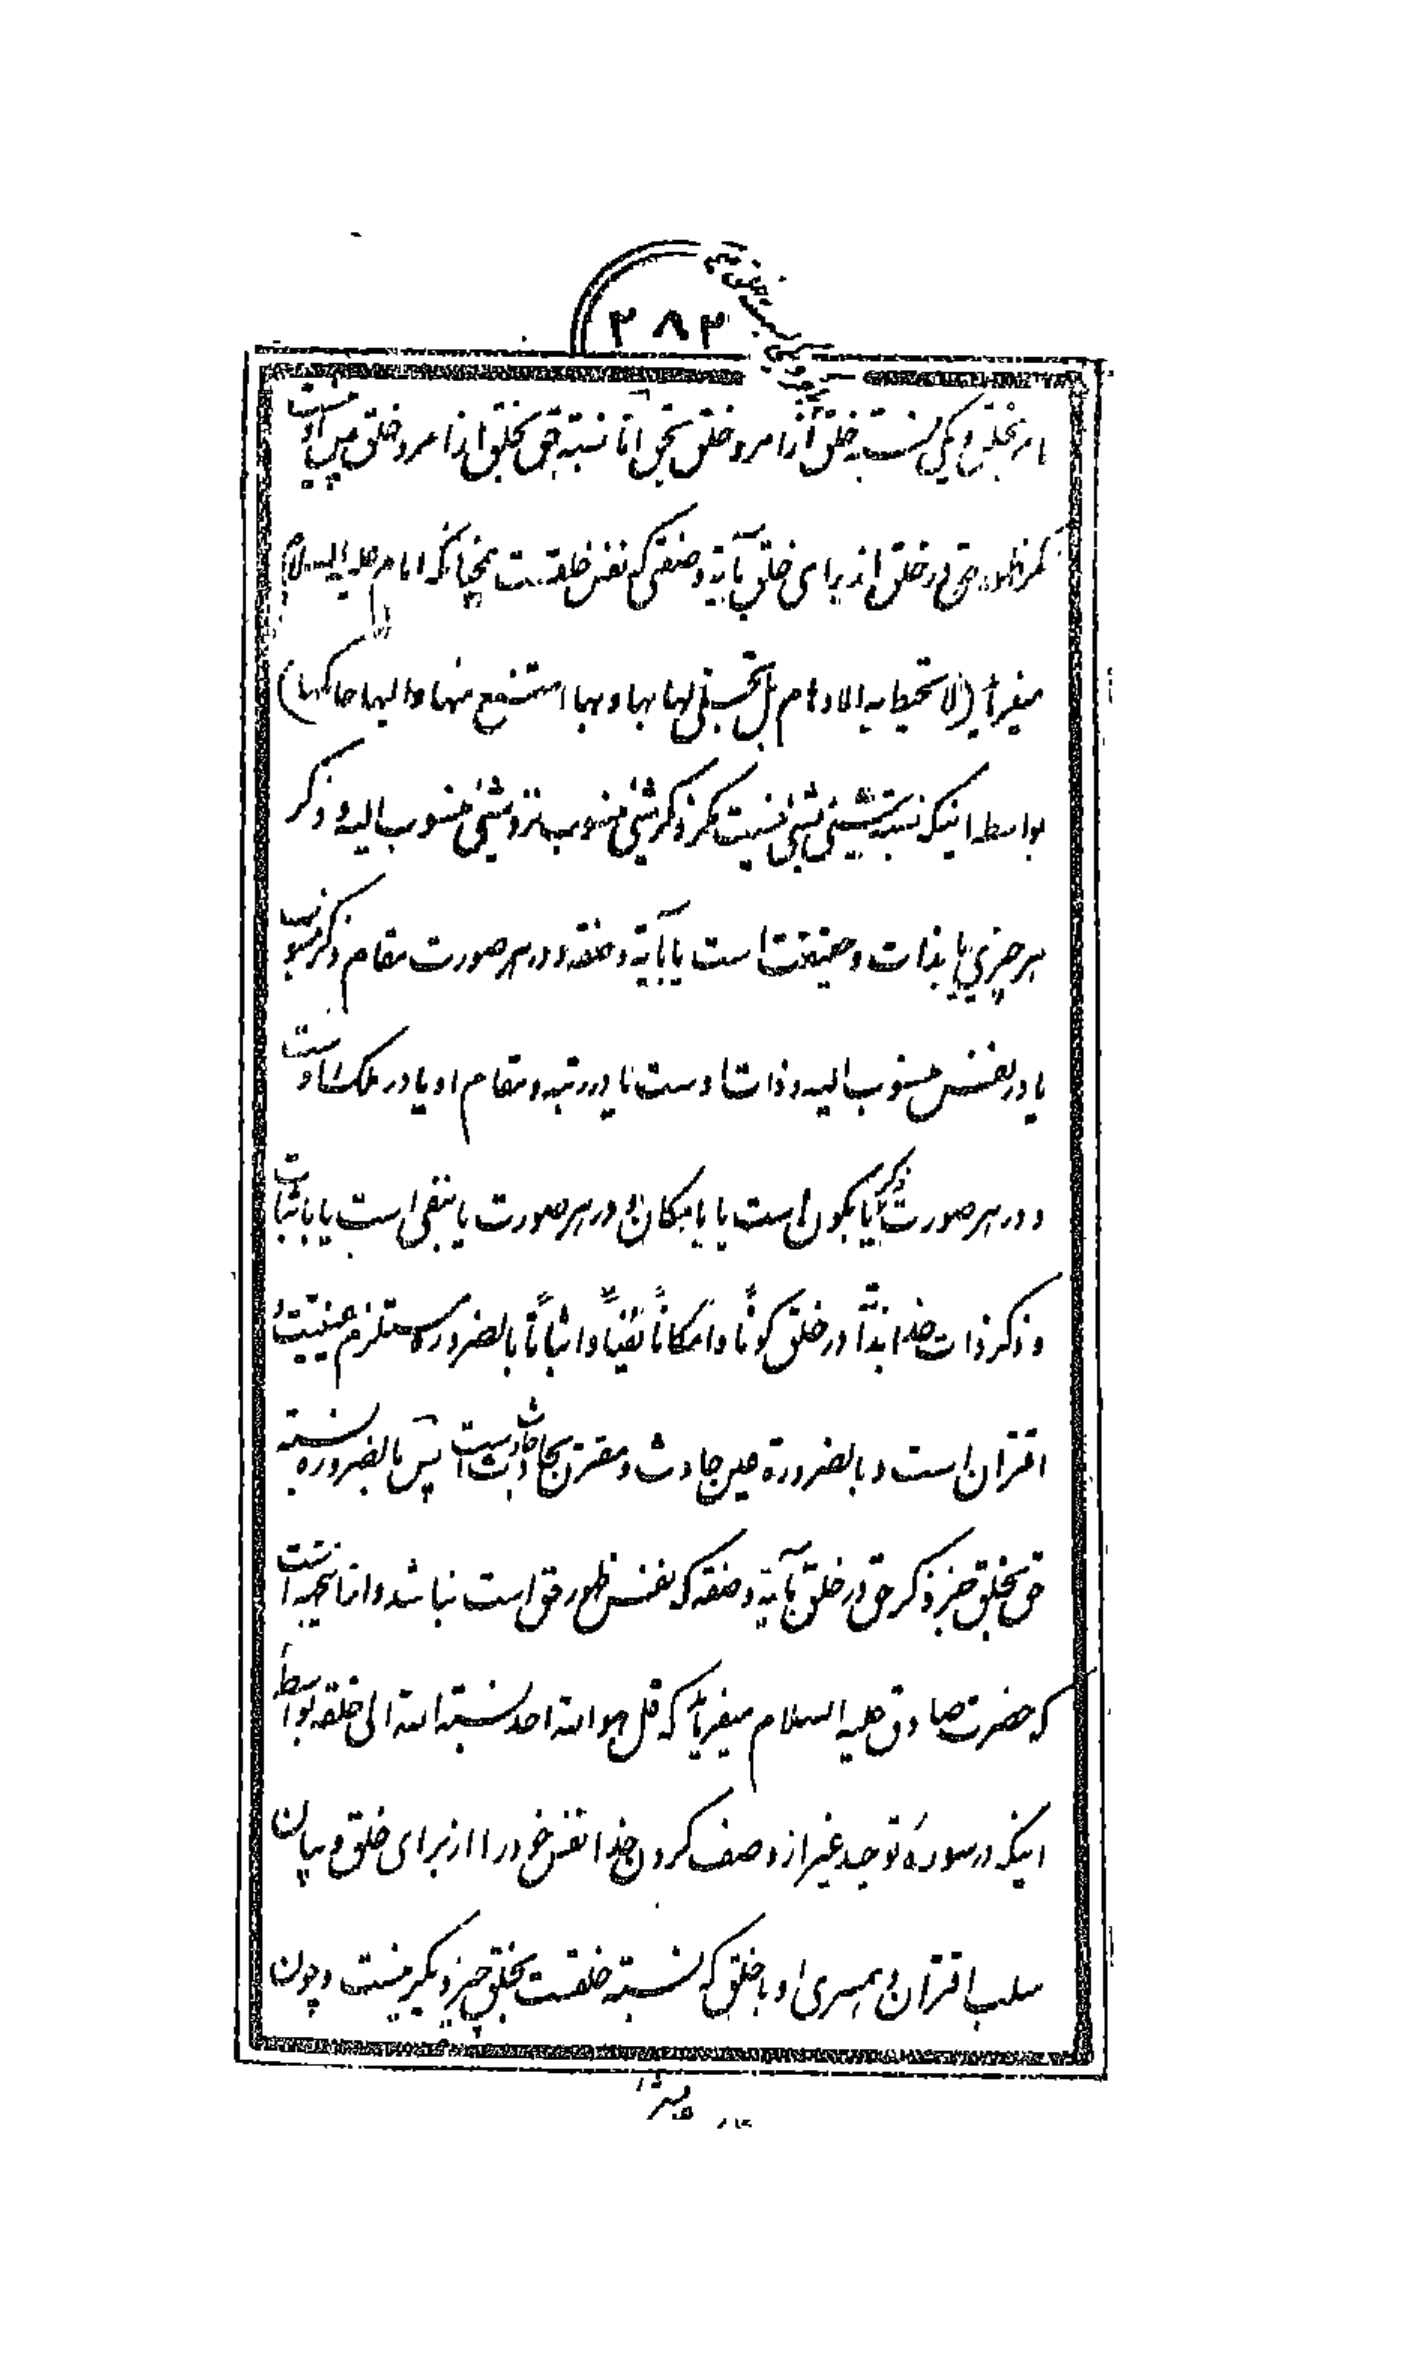 ۲۸۲
امر بخلق و یکی نسبت خلق از امر و خلق بحق اما نسبة حق بخلق از امر و خلق پس او نیست
مگر ظهور حق در خلق از برای خلق بآیة و صفتی که نفس خلقست همچنانکه امام علیه السلام
میفرماید (لا تحیط به الاوهام بل تجلی لها بها و بها امتنع منها و الیها حاکمها)
بواسطه اینکه نسبة شیئی بشیئی نیست مگر ذکر شیئی منسوب نزد شیئی منسوب الیه و ذکر
هر چیزی یا بذات و حقیقت است یا بآیة و صفة و در هر صورت مقام ذکر منسوب
یا در نفس منسوب الیه و ذات اوست یا در رتبه و مقام او یا در ملک اوست
و در هر صورت ذکر یا بکون است یا بامکان و در هر صورت یا بنفی است یا باثبات
و ذکر ذات خدا بذاته در خلق کوناً و امکاناً نفیاً و اثباتاً بالضروره مستلزم عینیت و
اقتران است و بالضرورة عین حادث و مقترن بحادث حادث است پس بالضروره نسبته
حق بخلق جز ذکر حق در خلق بآیة و صفة که نفس ظهور حق است نباشد و اما
که حضرت صادق علیه السلام میفرماید که قل هو الله احد نسبة الله الی خلقه بواسطه
اینکه در سورهٔ توحید غیر از وصف کردن خدا نفس خود را از برای خلق و بیان
سلب اقتران و همسری او با خلق که نسبته خلقست بخلق چیز دیگر نیست و چون